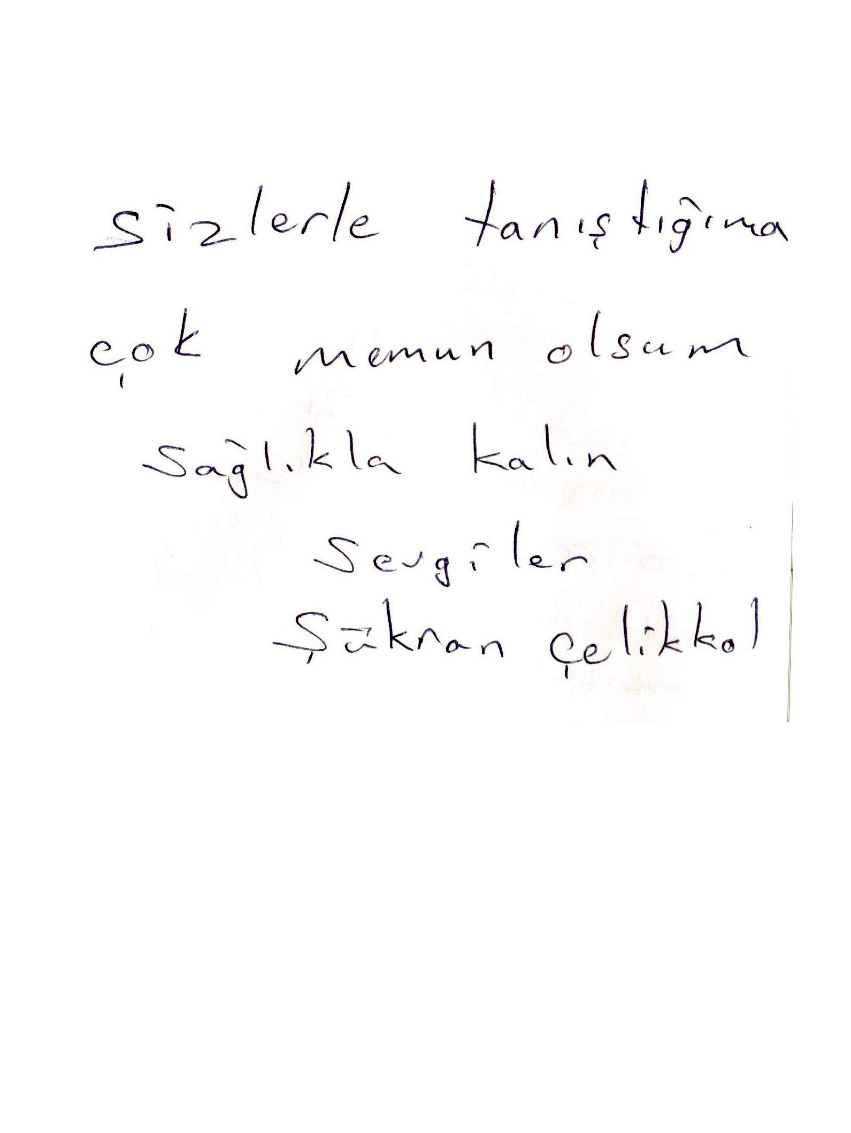 Sizlerle tanıştığıma
çok memun olsum
Sağlıkla kalın
Sevgiler
Şükran Çelikkol